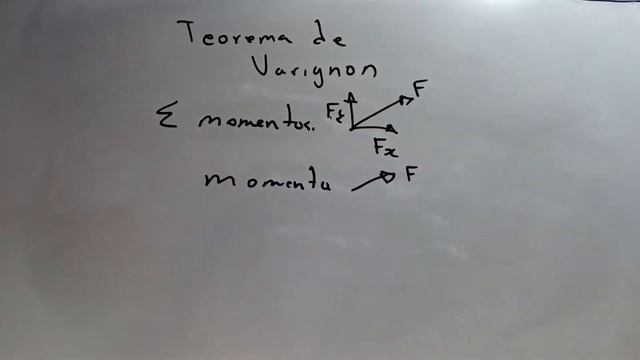 Teorema de
Varignon
Σ momentos. Fy F
Fx
momento F